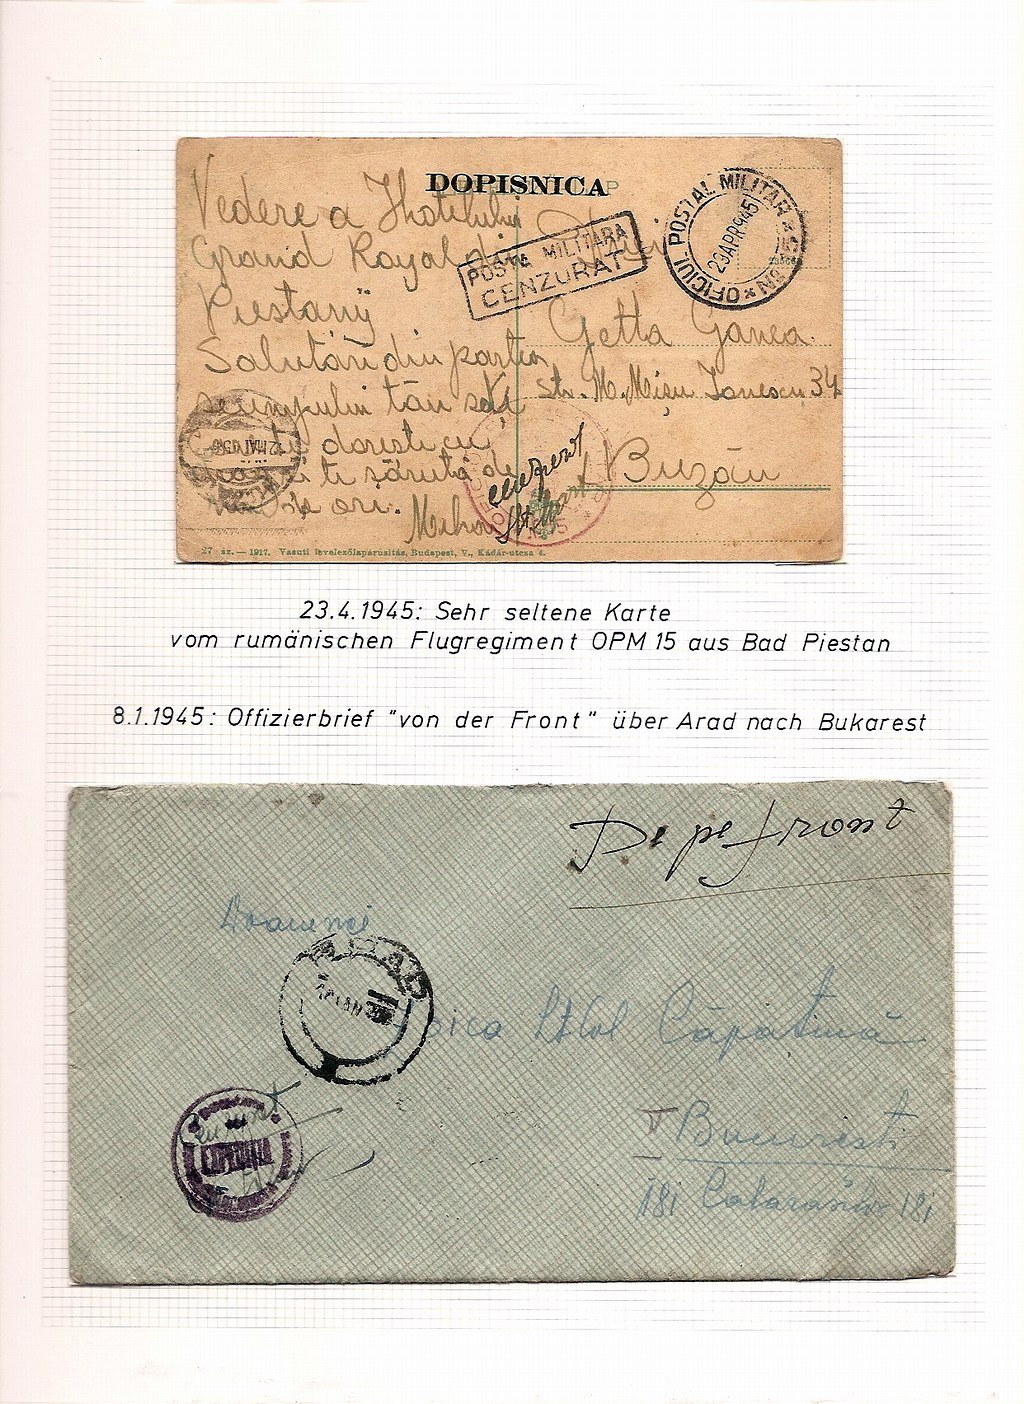 DOPISNICA
Vedere a Hotelului
Grand Royal din
Piestany
Salutări din partea
POSTA MILITARA
CENZURAT
OFICIUL POSTAL MILITAR * No
23APR945
Getta Ganea
Str. M. Mișu Ionescu 34
Buzău
cenzurat
ori.
27 sz. — 1917. Vasuti levelezőlapárusitás, Budapest, V., Kádár-utcza 4.
23.4.1945: Sehr seltene Karte
vom rumänischen Flugregiment OPM 15 aus Bad Piestan
8.1.1945: Offizierbrief "von der Front" über Arad nach Bukarest
De pe front
Doamnei
ARAD
Lt Col Căpatină
București
181 Calarasilor 181